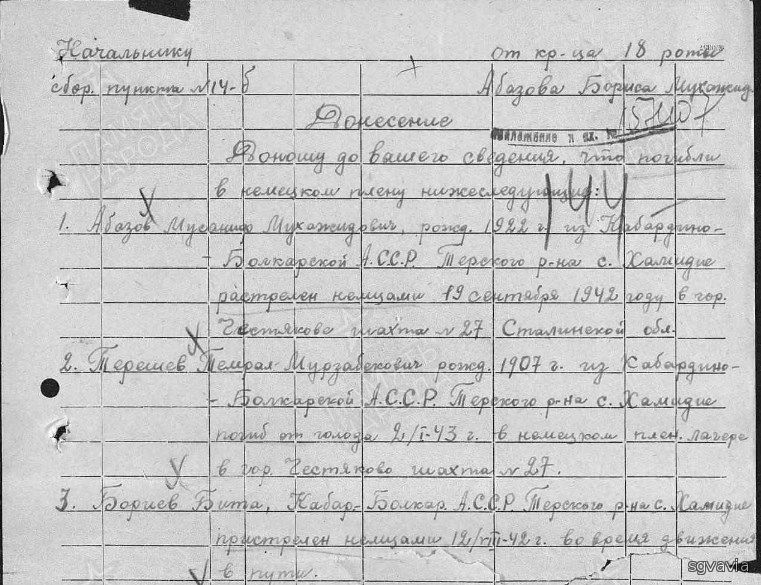 Начальнику от кр-ца 18 роты
сбор. пункта №14-б Абазова Бориса Мухажид.
Донесение
приложение к вх. № 157107
Доношу до вашего сведения, что погибли
в немецком плену нижеследующие:
144
1. Абазов Мусаниф Мухажидович, рожд. 1922 г. из Кабардино-
- Болкарской А.С.С.Р. Терского р-на с. Хамидие
растрелен немцами 19 сентября 1942 году в гор.
Честякове шахта №27 Сталинской обл.
2. Терешев Темрал Мурзабекович рожд. 1907 г. из Кабардино-
- Болкарской А.С.С.Р. Терского р-на с. Хамидие
погиб от голода 2/I-43 г. в немецком плен. лагере
в гор. Честяково шахта №27.
3. Бориев Бита, Кабар-Болкар. А.С.С.Р Терского р-на с. Хамидие
пристрелен немцами 12/VIII-42 г. во время движения
в пути.
ПАМЯТЬ НАРОДА
sgvavia